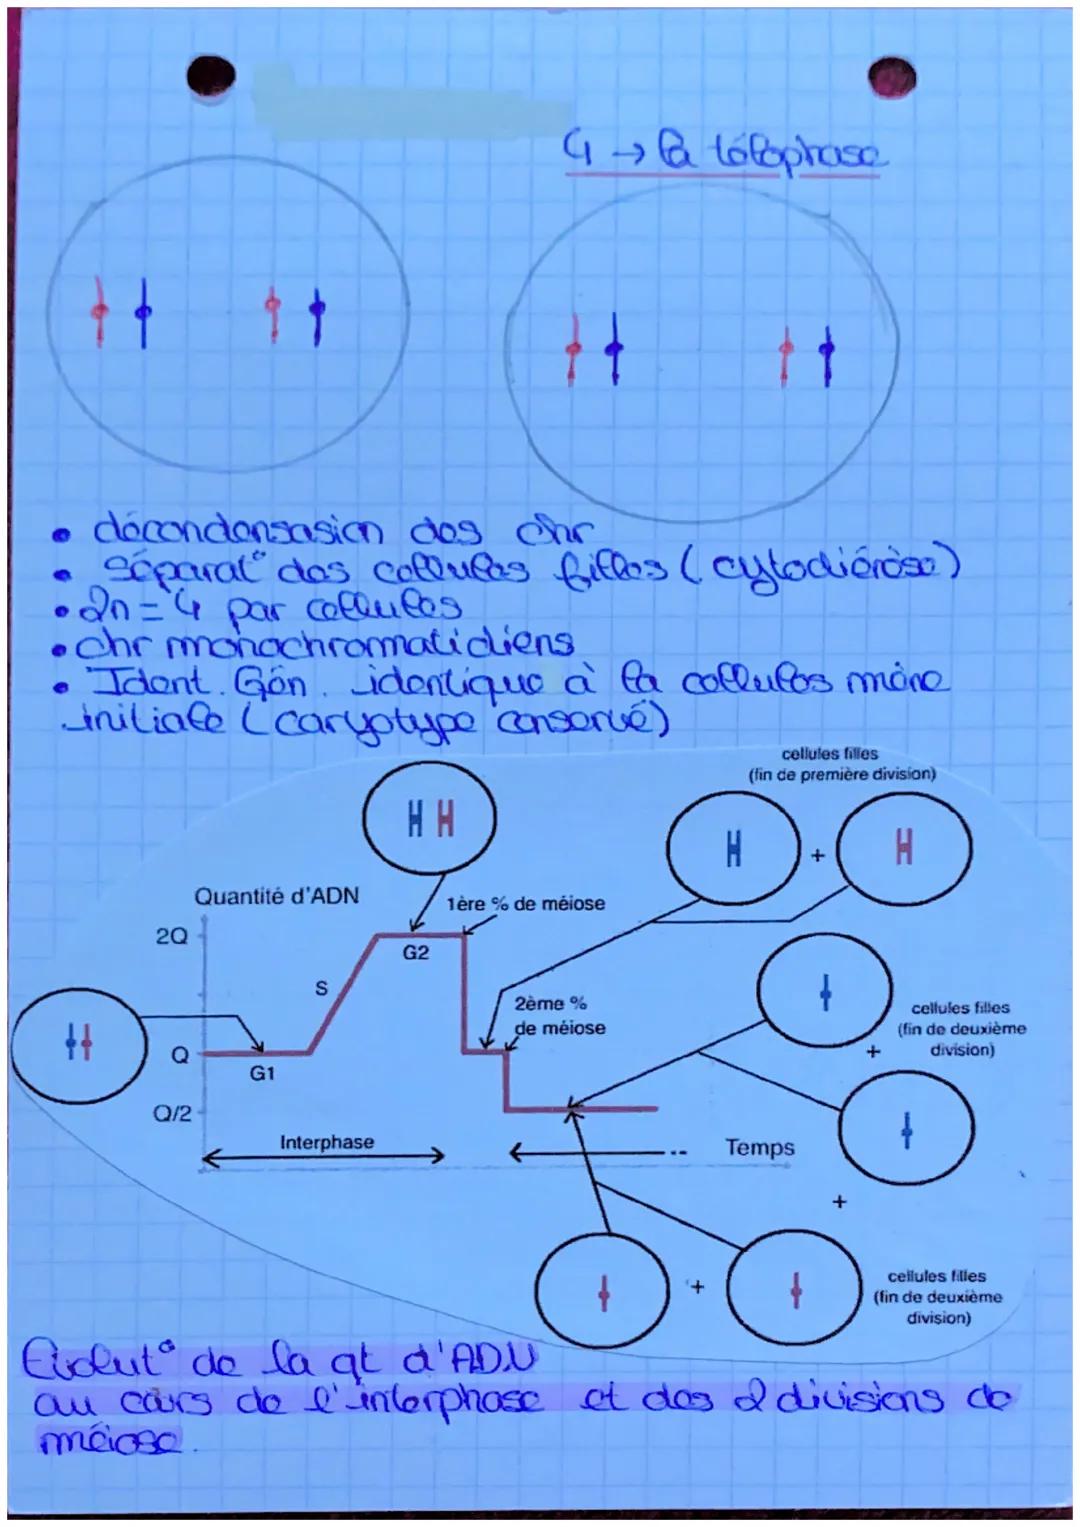 4 → la télophase
• décondensasion des chr
• séparat° des cellules filles (cytodiérèse)
• 2n = 4 par cellules
• chr monochromatidiens
• Ident. Gén. identique à la cellules mère
initiale (caryotype conservé)
cellules filles
(fin de première division)
+
Quantité d'ADN
1ère % de méiose
2Q
G2
S
2ème %
de méiose
cellules filles
(fin de deuxième
division)
+
Q
G1
Q/2
Interphase
Temps
+
+
cellules filles
(fin de deuxième
division)
Evolut° de la qt d'ADN
au cours de l'interphase et des 2 divisions de
méiose.